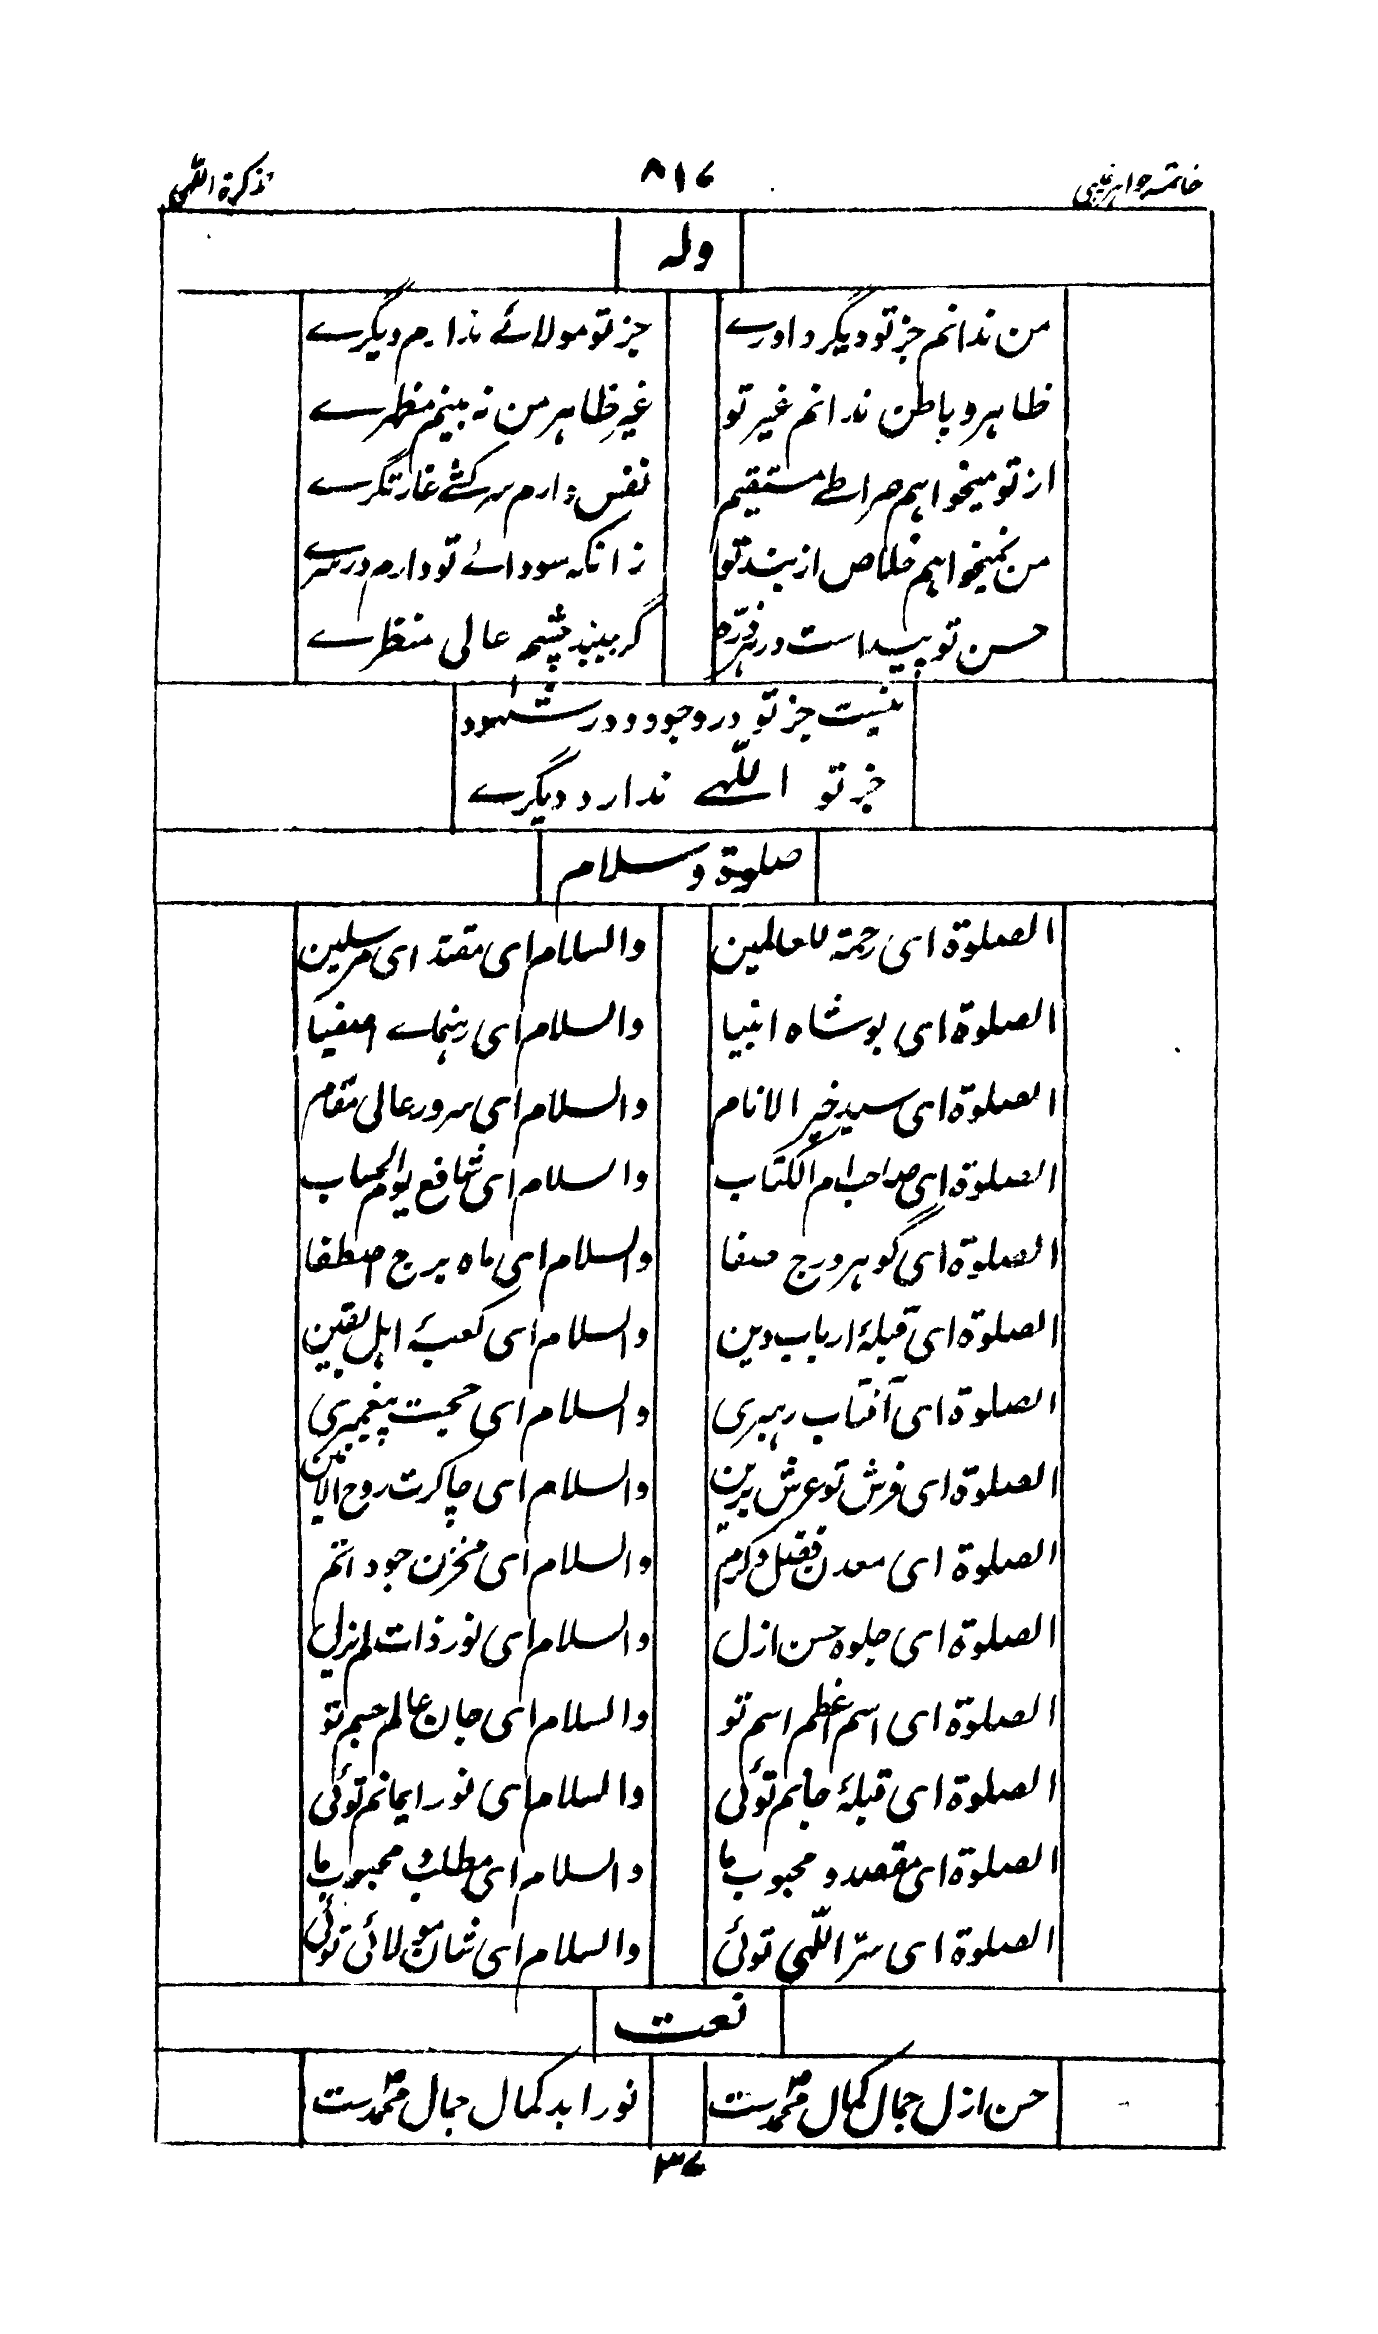 خاتمہ جواہر غیبی ۸۱۶ تذکرۃ اللّٰہی
ولہ
من ندانم جز تو دیگر داورے جز تو مولائے ندارم دیگرے
ظاہر و باطن ندانم غیر تو غیر ظاہر من نہ بینم مظہرے
از تو میخواہم صراطے مستقیم نفس دارم سرکشے غارتگرے
من نمیخواہم خلاص از بند تو زانکہ سودائے تو دارم در سرے
حسن تو پیداست در ہر ذرّہ گر ببیند چشم عالی منظرے
نیست جز تو در وجود و در شہود
جز تو اللّٰہے ندارد دیگرے
صلوۃ و سلام
الصلوۃ ای رحمۃ للعالمین والسلام ای مقتدای مرسلین
الصلوۃ ای بو شاہ انبیا والسلام ای رہنماے اصفیا
الصلوۃ ای سید خیر الانام والسلام ای سرور عالی مقام
الصلوۃ ای صاحب ام الکتاب والسلام ای شافع یوم الحساب
الصلوۃ ای گوہر درج صفا والسلام ای ماہ برج اصطفا
الصلوۃ ای قبلۂ ارباب دین والسلام ای کعبۂ اہل یقین
الصلوۃ ای آفتاب رہبری والسلام ای حجت پیغمبری
الصلوۃ ای فرش تو عرش برین والسلام ای چاکرت روح الامین
الصلوۃ ای معدن فضل و کرم والسلام ای مخزن جود اتم
الصلوۃ ای جلوہ حسن ازل والسلام ای نور ذات لم یزل
الصلوۃ ای اسم اعظم اسم تو والسلام ای جان عالم جسم تو
الصلوۃ ای قبلۂ جانم توئی والسلام ای نور ایمانم توئی
الصلوۃ ای مقصد و محبوب ما والسلام ای مطلب و محبوب ما
الصلوۃ ای سرّ اللّٰہی توئی والسلام ای شان مولائی توئی
نعت
حسن ازل جمال کمال محمدؐست نور ابد کمال جمال محمدؐست
۳۶